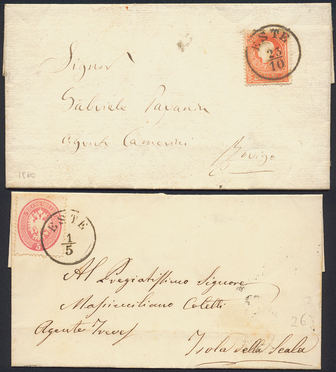 ESTE
23/10
Signor
Gabriele
Agente Camerini
Rovigo
1860
ESTE
1/5
Al Pregiatissimo Signore
Massimiliano Coletti
Agente Treves
Isola della Scala
263